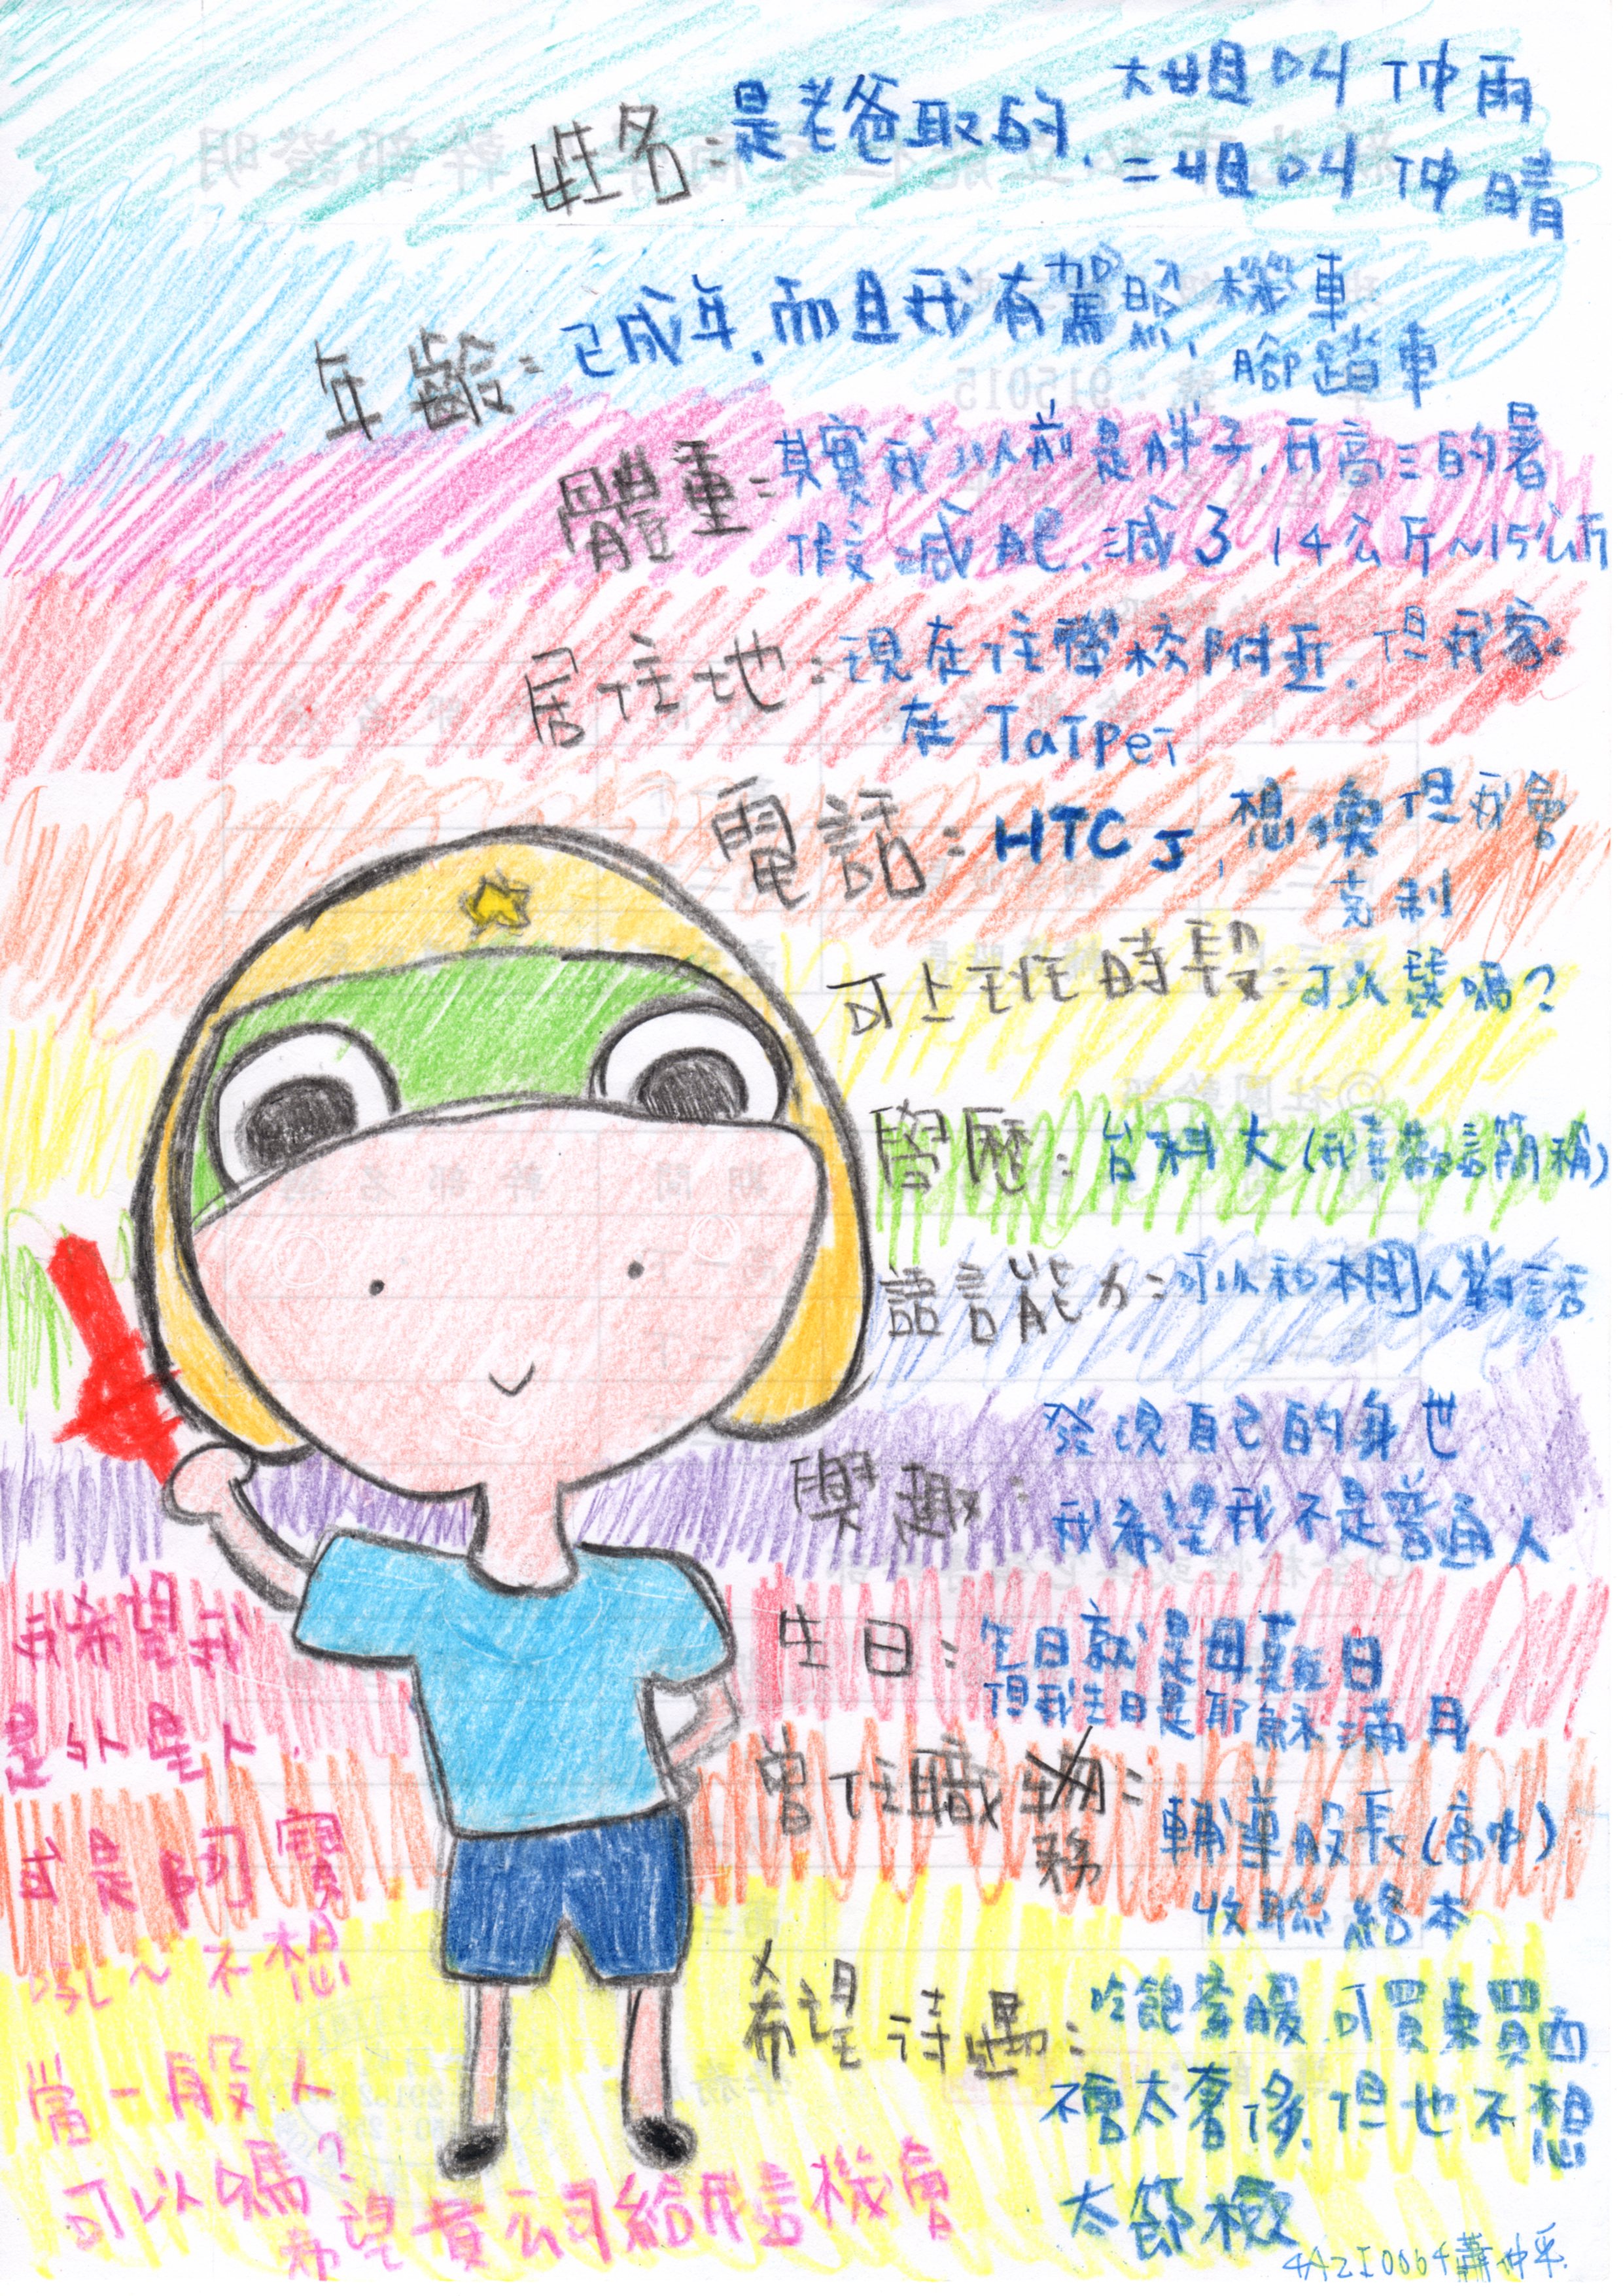 姓名：是老爸取的、大姐叫仲雨
二姐叫仲晴
年齡：已成年，而且我有駕照、機車
腳踏車
體重：其實我以前是胖子，在高三的暑
假減肥，減了14公斤~15公斤
居住地：現在住學校附近，但我家
在Taipei
電話：HTC J，想換但我會
克制
可上班時段：可以談嗎？
學歷：台科大(我喜歡說簡稱)
語言能力：可以和本國人對話
興趣：發現自己的身世
我希望我不是普通人
生日：生日就是母難日
但我生日是耶穌滿月
曾任職務：
輔導股長(高中)
收聯絡本
希望待遇：吃飽穿暖，可買東買西
不會太奢侈，但也不想
太節檢
我希望我
是外星人
或是阿寶
吼~不想
當一般人
可以嗎？
希望貴公司給我這機會
蕭仲